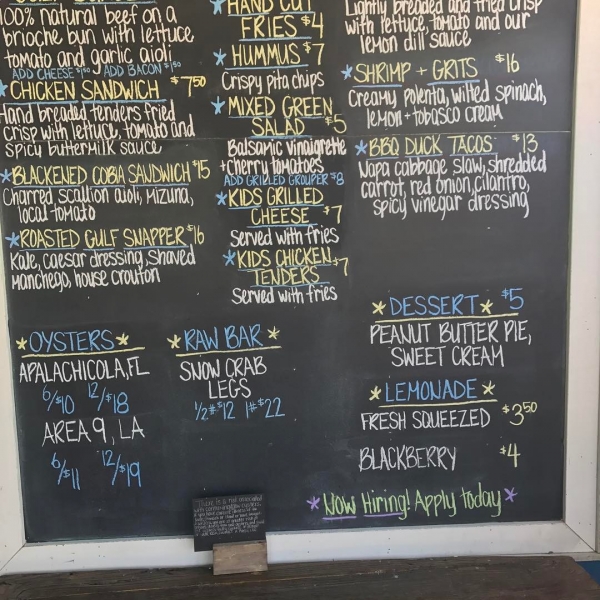 100% natural beef on a
brioche bun with lettuce
tomato and garlic aioli
ADD CHEESE $1.50 ADD BACON $1.50
*CHICKEN SANDWICH $7.50
Hand breaded tenders fried
crisp with lettuce, tomato and
spicy buttermilk sauce
*BLACKENED COBIA SANDWICH $15
Charred scallion aioli, Mizuna,
local tomato
*ROASTED GULF SNAPPER $16
Kale, caesar dressing, Shaved
Manchego, house crouton
*HAND CUT
FRIES $4
*HUMMUS $7
Crispy pita chips
*MIXED GREEN
SALAD $5
Balsamic vinaigrette
+ cherry tomatoes
ADD GRILLED GROUPER $8
*KIDS GRILLED
CHEESE $7
Served with fries
*KIDS CHICKEN
TENDERS $7
Served with fries
Lightly breaded and fried crisp
with lettuce, tomato and our
lemon dill sauce
*SHRIMP + GRITS $16
Creamy polenta, wilted spinach,
lemon + tobasco cream
*BBQ DUCK TACOS $13
Napa cabbage slaw, shredded
carrot, red onion, cilantro,
spicy vinegar dressing
*OYSTERS*
APALACHICOLA, FL
6/$10 12/$18
AREA 9, LA
6/$11 12/$19
*RAW BAR*
SNOW CRAB
LEGS
1/2# $12 1# $22
*DESSERT* $5
PEANUT BUTTER PIE,
SWEET CREAM
*LEMONADE*
FRESH SQUEEZED $3.50
BLACKBERRY $4
*NOW Hiring! Apply today*